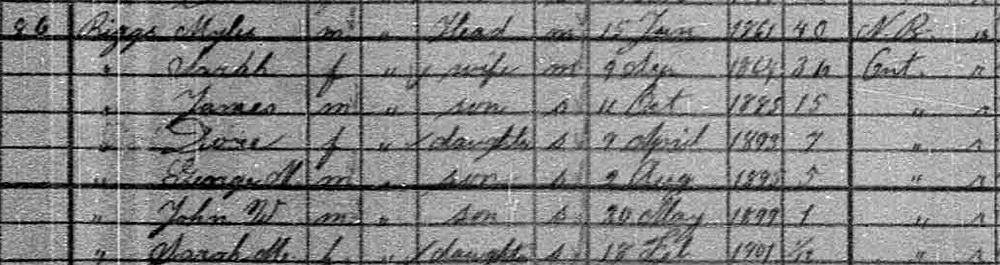 26 Riggs Myles m " Head m 15 Jan 1861 40 N.B. r
" Sarah f " wife m 9 Sep 1864 36 Ont. r
" James m " son s 11 Oct 1885 15 " r
" f " daughter s 9 April 1893 7 " r
" George M. m " son s 9 Aug 1895 5 " r
" John W m " son s 20 May 1899 1 " r
" Sarah M. f " daughter s 18 Feb 1901 1/12 " r